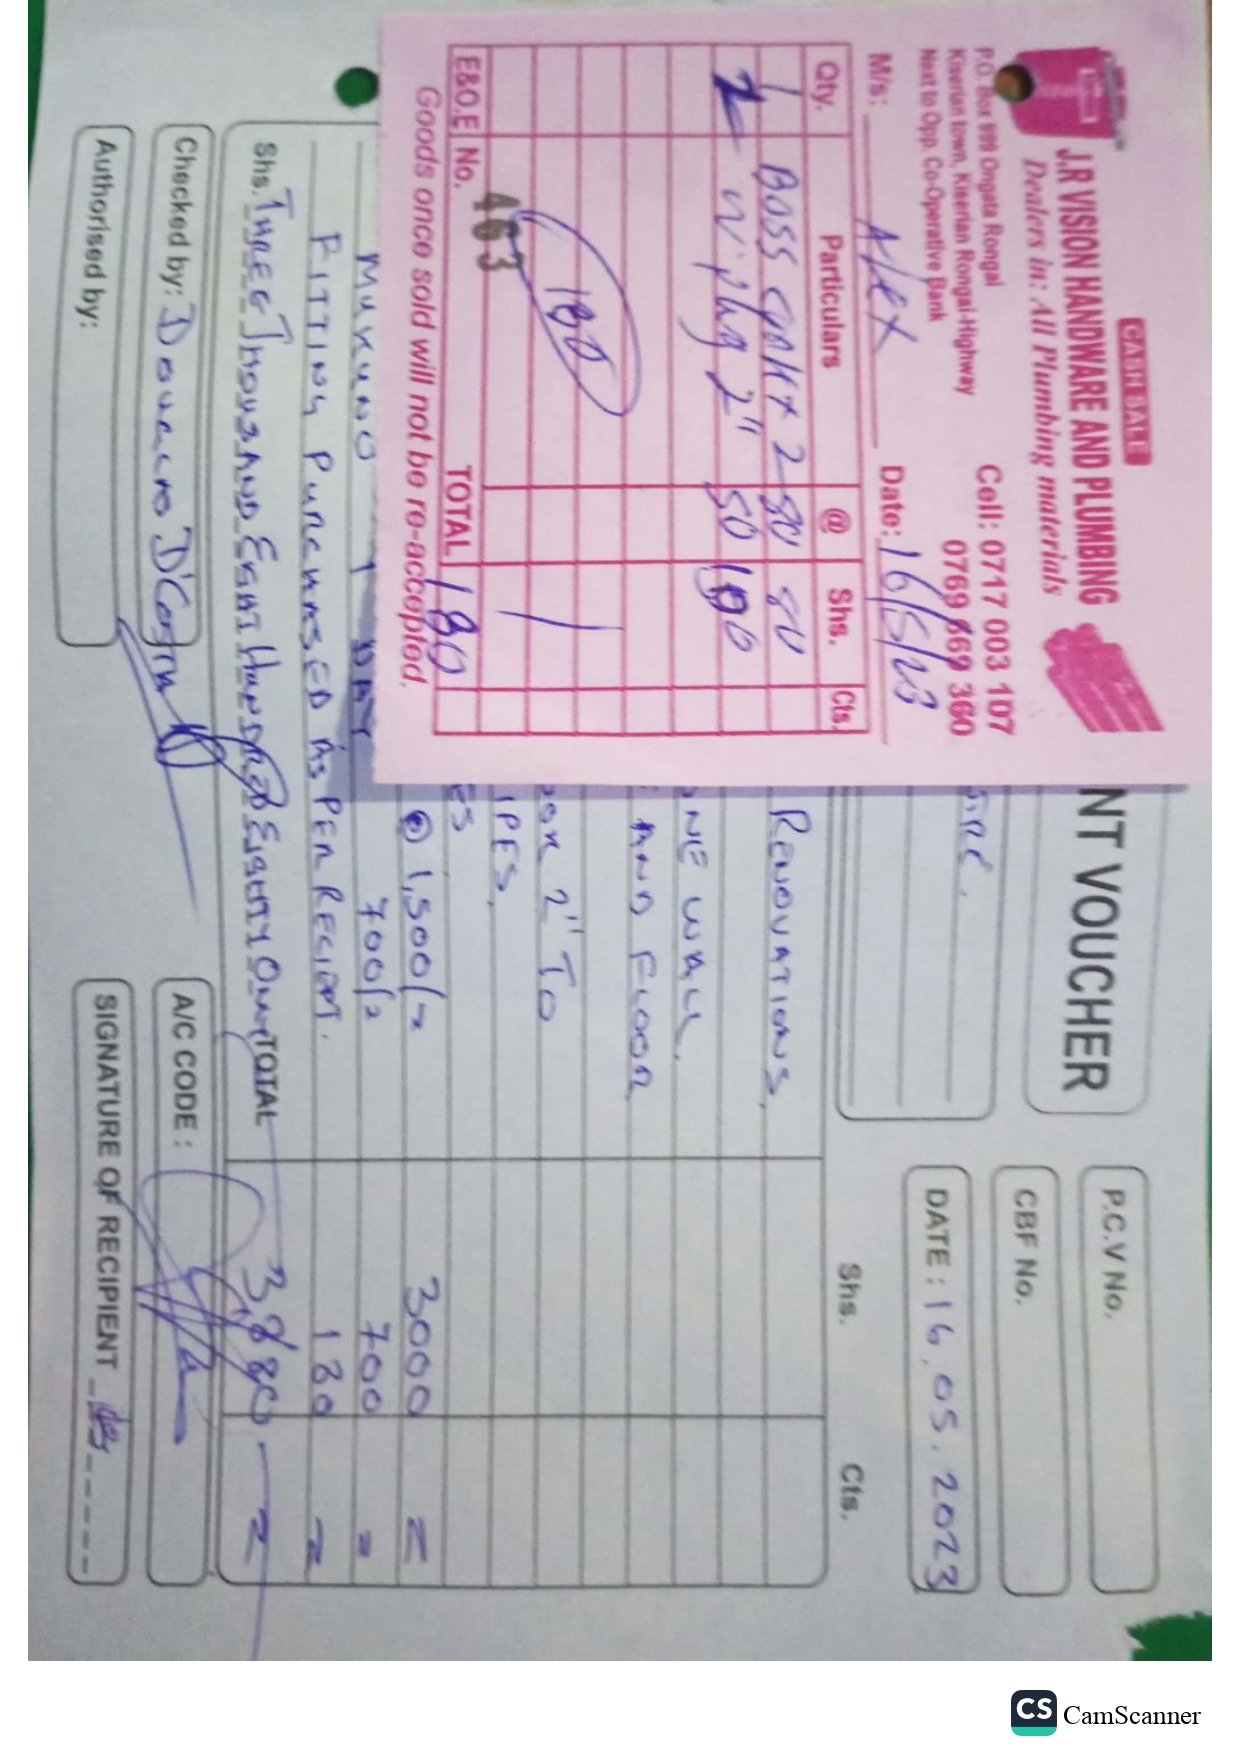 CASH SALE
J.R VISION HANDWARE AND PLUMBING
Dealers in: All Plumbing materials
P.O. Box 999 Ongata Rongai
Kiserian town, Kiserian Rongai-Highway
Next to Opp. Co-Operative Bank
Cell: 0717 003 107
0769 669 360
M/s: Alex Date: 16/5/23
Qty. Particulars @ Shs. Cts.
1 Boss 80 80
2 w. plug 2" 50 100
180
463
E&O.E No. TOTAL 180
Goods once sold will not be re-accepted.
NT VOUCHER
P.C.V No.
CBF No.
DATE: 16.05.2023
Shs. Cts.
RENOVATIONS,
ONE WALL,
AND FLOOR
2" TO
IPES,
ES
@ 1,500/= 3000 =
MUKUNO 1 DAY 700/= 700 =
FITTING PURCHASED AS PER RECIEPT. 180 =
Shs. THREE THOUSAND EIGHT HUNDRED EIGHTY ONLY TOTAL 3,880 =
Checked by: D'Costa
A/C CODE:
Authorised by:
SIGNATURE OF RECIPIENT
CS CamScanner